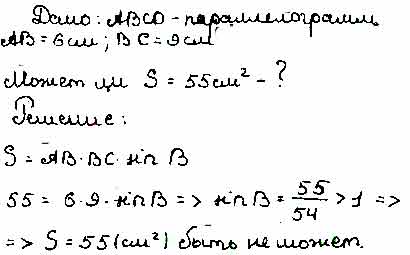 Дано: ABCD - параллелограмм
AB = 6 см; BC = 9 см
Может ли S = 55 см² - ?
Решение:
S = AB · BC · sin B
55 = 6 · 9 · sin B => sin B = 55/54 > 1 =>
=> S = 55 (см²) быть не может.